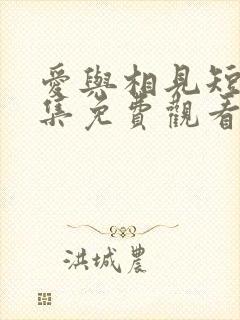 愛與相見短
集免費觀看
洪城農